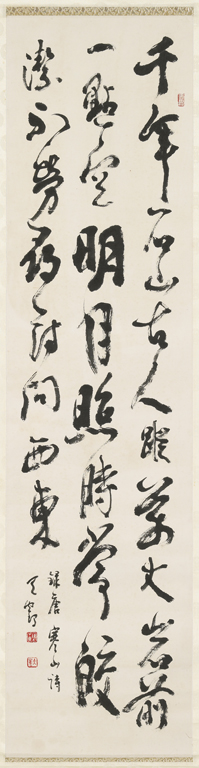 千年石上古人蹤萬丈岩前
一點空明月照時常皎
潔不勞尋討問西東
錄唐寒山詩